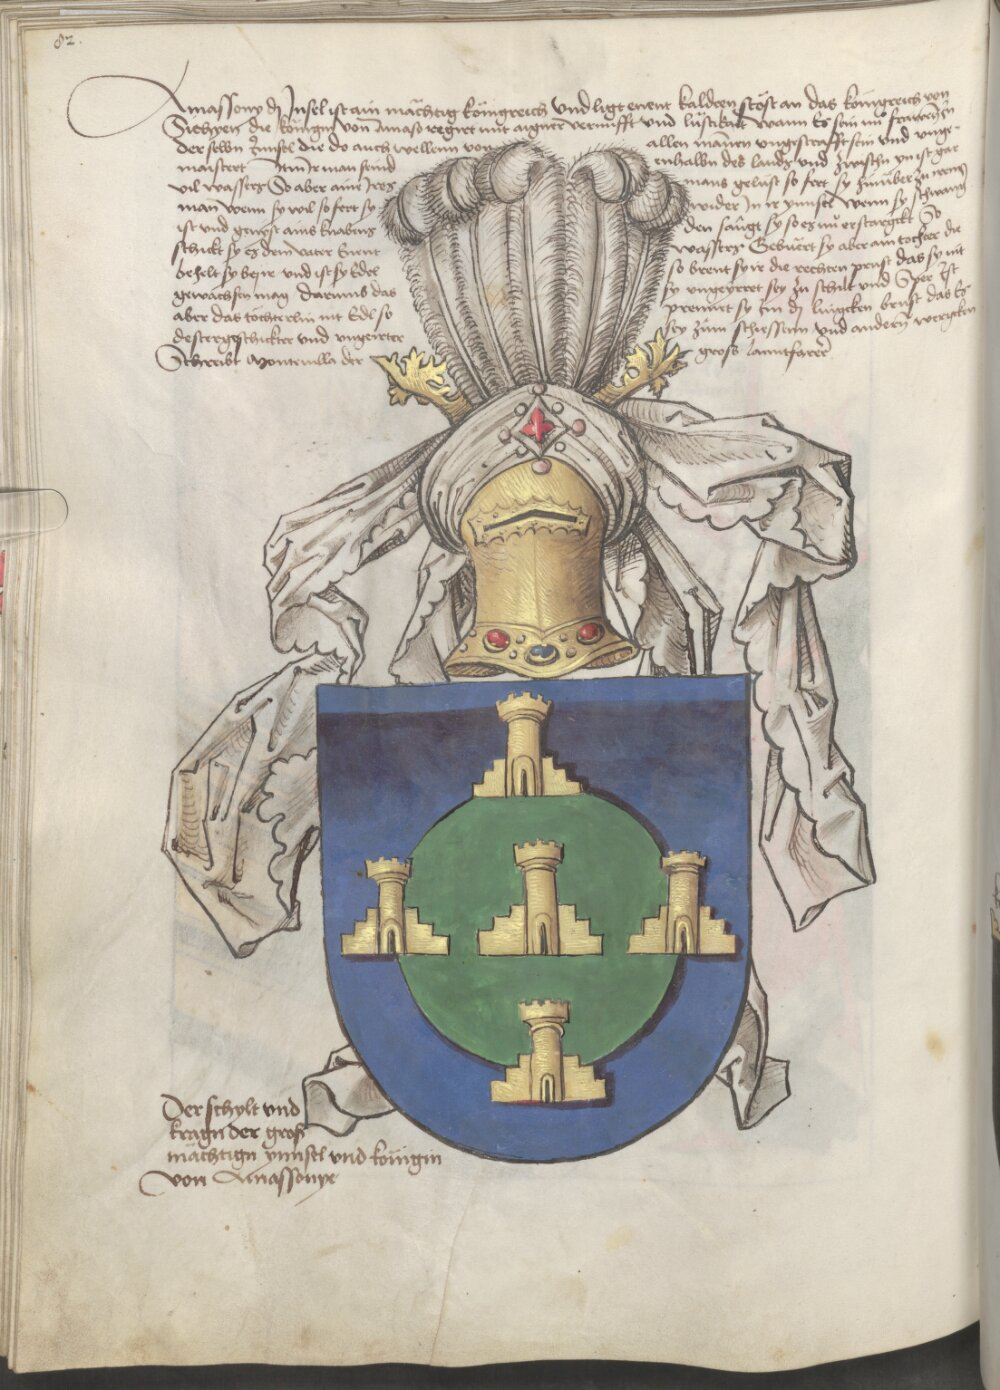 82.
Amassony di Jnsel ist ain mächtig königreich und ligt enent kaldeen stöst an das königreich von
die königin von Amaso regirt mit aigner vernufft und wann Es sein nu
der selbn Jnnsel die do auch wellenn von allen manen ungestrafft sein und unge-
maistert man seind enhalbn des lands und zwischn yn ist gar
vil wassers So aber aine Jres mans gelust so fert sy hinüber zu irem
man wenn sy wil so fert sy wider Jn ir ynnsel wenn sy schwang
ist und genyst ains knabens den saugt sy so es nu erstarcket So
schickt sy es dem vater Enent wassers Gebüert sy aber ain tochter die
behelt sy bey ir und ist sy Edel so brent sy ir die rechten prust das sy nit
gewachsen mag darumb das sy ungeyrret sey zu schilt und Sper Jst
aber das tochterlin nit Edl so prennt sy im di lingcken brust das Es
destergeschickter und ungeirter sey zum schiessenn und andern wercken
Schreibt Montevilla der gross lanntfarer
Der schylt und
kragn der gross
mächtign ynnsel und königin
von Amassonye